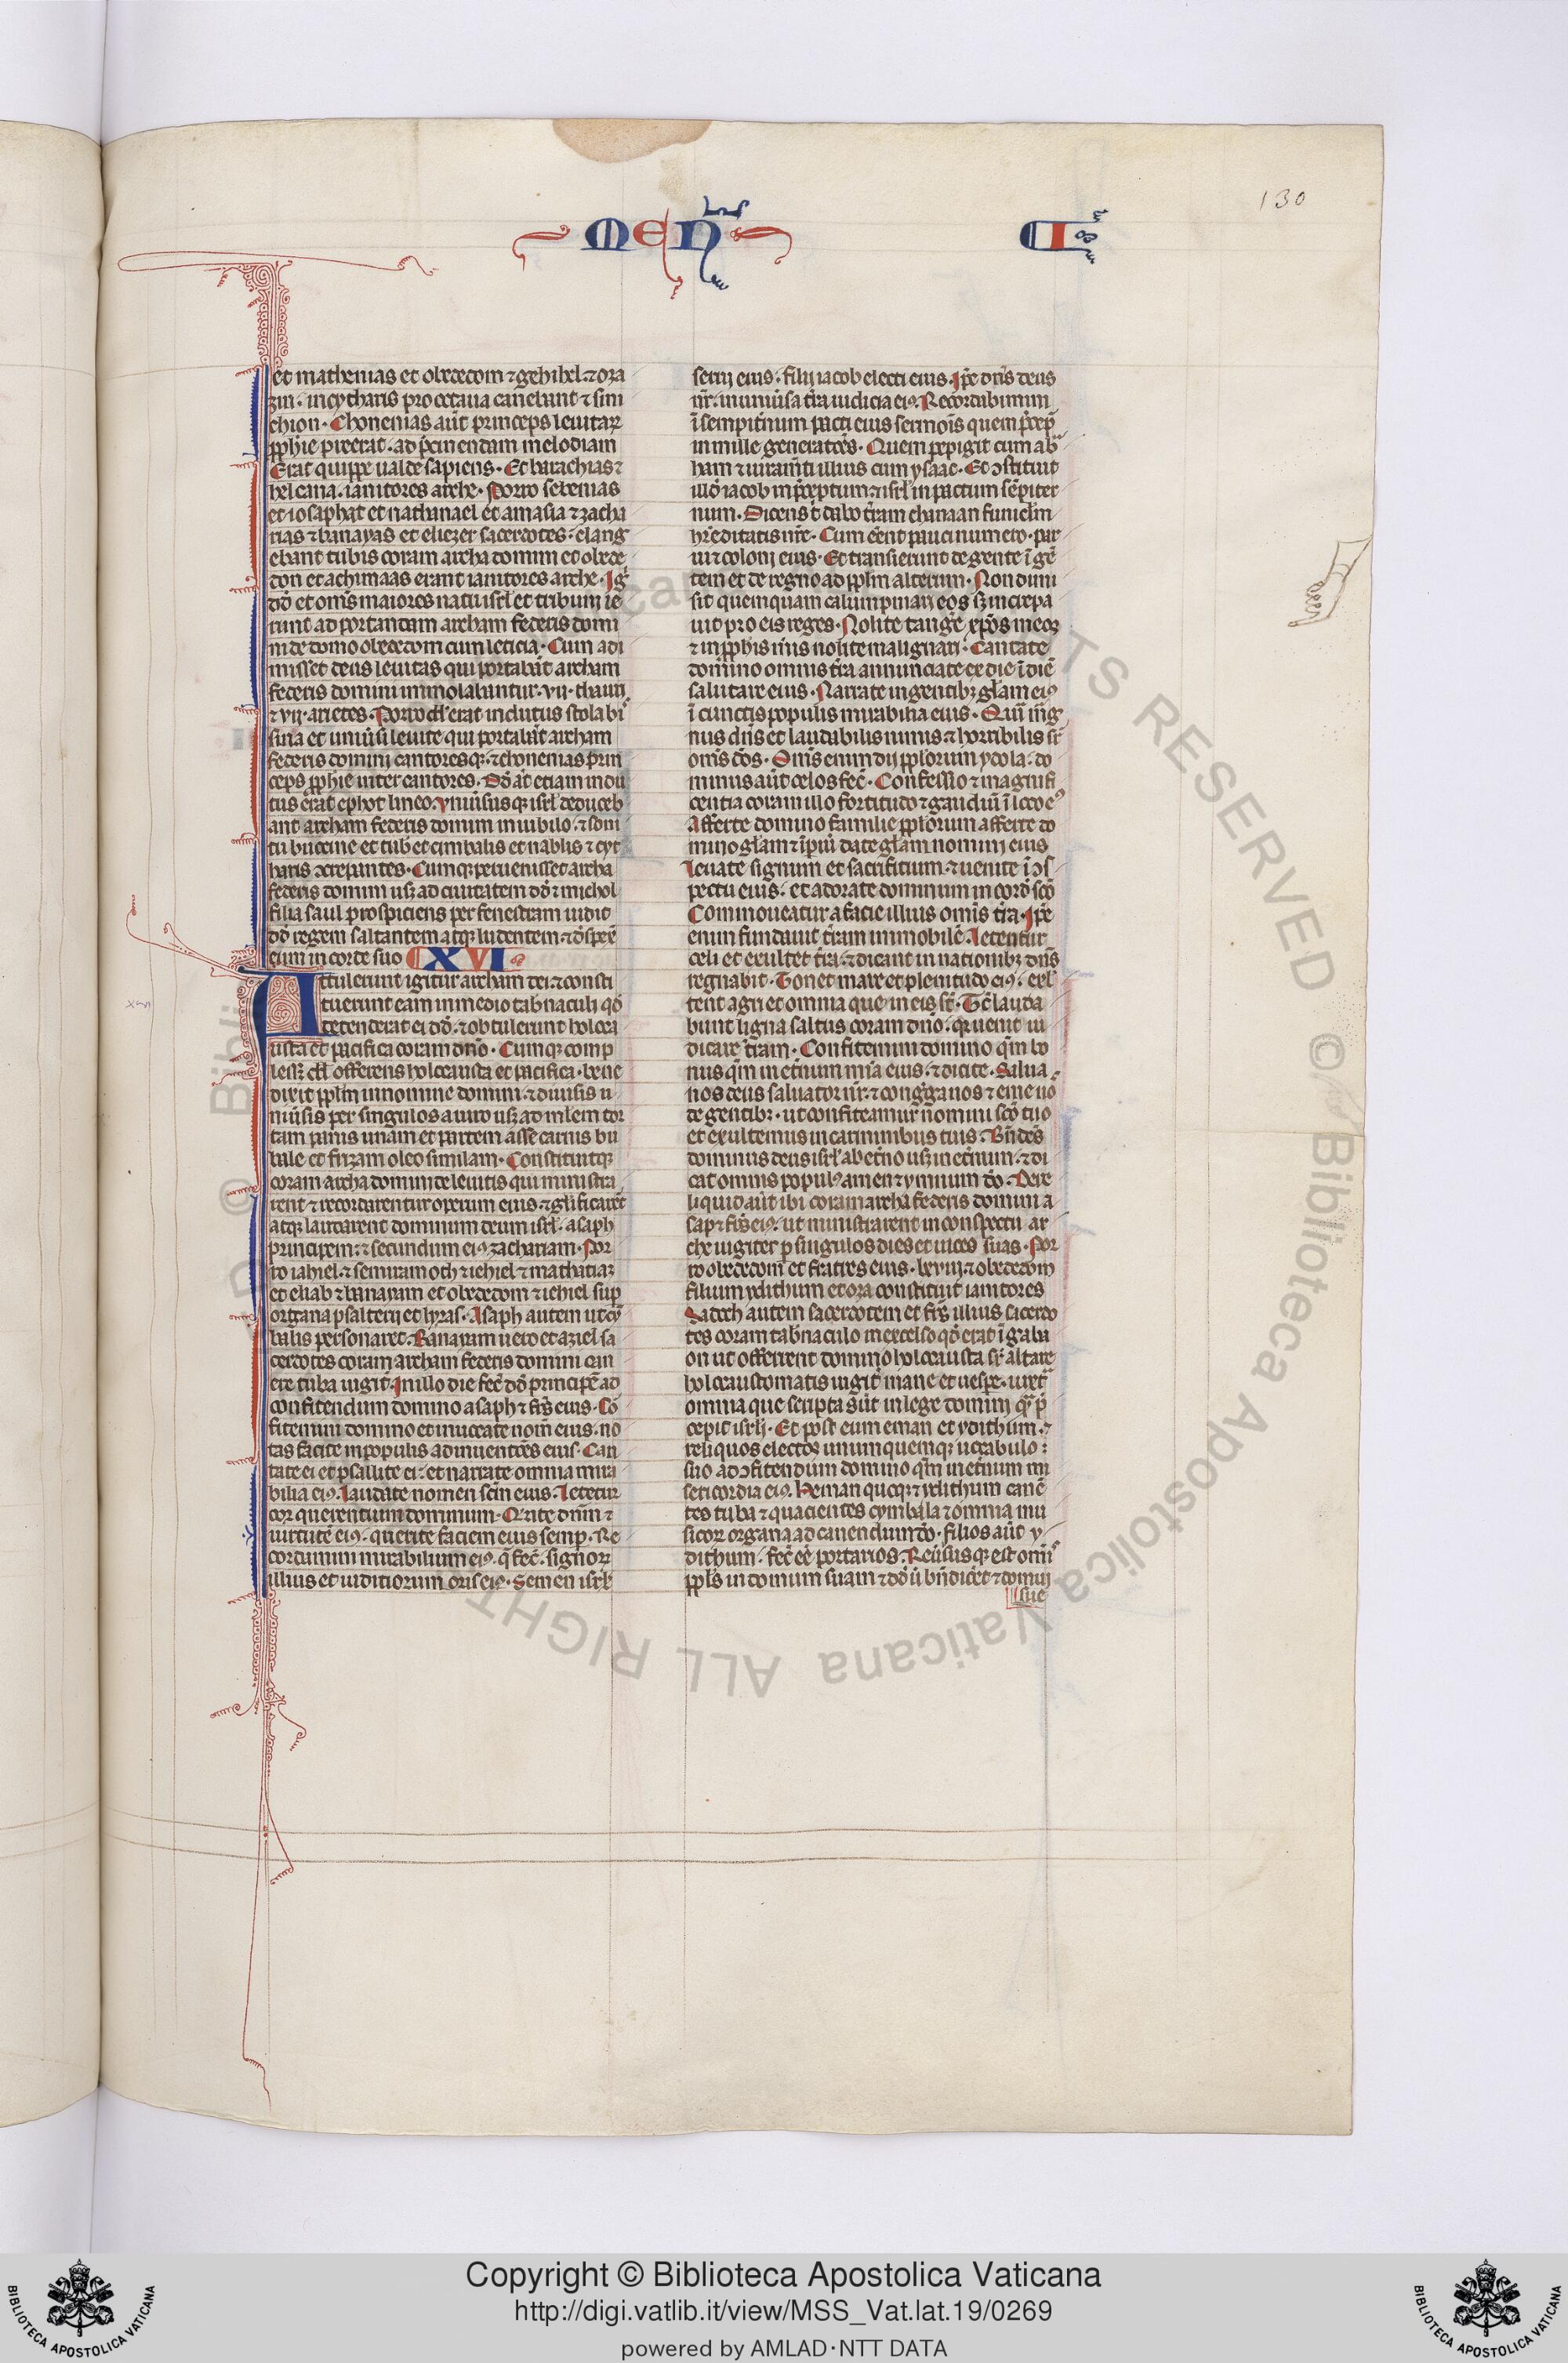 130
men̄
I
et mathenias et obededom ⁊ gehihel ⁊ oza
ziu · in cytharis pro octaua canebant ⁊ sini
chion · Chonenias aūt princeps leuitaꝝ
ꝓphīe preerat · ad p̄cinendam melodiam
Erat quippe ualde sapiens · Et barachias ⁊
helcana · ianitores arche · Porro sebenias
et iosaphat et nathanael et amasia ⁊ zacha
rias ⁊ banayas et eliezer sacerdotes · clang
ebant tubis coram archa domini et obede
don et achimaas erant ianitores arche · Iḡ
dd̄ et om̄s maiores natu isrl̄ et tribuni ie
runt ad portandam archam federis domi
ni de domo obededom cum leticia · Cum adi
uuisset deus leuitas qui portabāt archam
federis domini immolabantur · vii · thauri
⁊ vii · arietes · Porro dd̄ erat indutus stola bi
sina et uniūsi leuite qui portabāt archam
federis domini cantoresqꝫ · ⁊ chonenias prin
ceps ꝓphīe inter cantores · Dd̄ āt etiam indu
tus erat ephot lineo · Vniūsusqꝫ isrl̄ deduceb
ant archam federis domini in iubilo · ⁊ soni
tu buccine et tub et cimbalis et nablis ⁊ cyt
haris ꝯcrepantes · Cumqꝫ peruenisset archa
federis domini usqꝫ ad ciuitatem dd̄ ⁊ michol
filia saul prospiciens per fenestram uidit
dd̄ regem saltantem atqꝫ ludentem · ⁊ dspex̄
eum in corde suo XVI
Attulerunt igitur archam dei · ⁊ consti
tuerunt eam in medio tab̄naculi qd̄
tetenderat ei dd̄ · ⁊ obtulerunt holoca
usta et pacifica coram dn̄o · Cumqꝫ comp
lessꝫ dd̄ offerens holocausta et pacifica · bene
dixit ppl̄m in nomine domini · ⁊ diuisis u
niūsis per singulos a uiro usqꝫ ad ml̄em tor
tam panis unam et partem asse carnis bu
bale et frixam oleo similam · Constituitqꝫ
coram archa domini de leuitis qui ministra
rent ⁊ recordarentur operum eius · ⁊ gl̄ificarēt
atqꝫ laudarent dominum deum isrl̄ · asaph
principem · ⁊ secundum eiꝰ zachariam · Por
ro iahiel · ⁊ semiramoth ⁊ iehiel ⁊ mathatiaꝫ
et eliab ⁊ banayam et obededom ⁊ iehiel suꝑ
organa psalterij et lyras · Asaph autem ut cȳ
balis personaret · Banayam uero et aziel sa
cerdotes coram archam federis domini can
ere tuba iugit̄ · In illo die fec̄ dd̄ principē ad
confitendum domino asaph ⁊ fr̄s eius · Cō
fitemini domino et inuocate nom̄ eius · no
tas facite in populis adinuentōes eius · Can
tate ei et psallite ei · et narrate omnia mira
bilia eiꝰ · Laudate nomen sc̄m eius · Letetur
cor querentium dominum · Qr̄ite dn̄m ⁊
uirtutē eiꝰ · querite faciem eius semꝑ · Re
cordamini mirabilium eiꝰ · q̄ fec̄ · signoꝝ
illius et iuditiorum oris eiꝰ · Semen isrl̄
serui eius · filij iacob electi eius · Ip̄e dn̄s deus
nr̄ · in uniūsa t̄ra iudicia eiꝰ · Recordabimini
ī sempit̄num pacti eius sermōis quem p̄cep̄
in mille generatōes · Quem pepigit cum ab
ham ⁊ iuram̄ti illius cum ysaac · Et ꝯstituit
illd̄ iacob in p̄ceptum · ⁊ isrl̄ in pactum sēpiter
num · Dicens t̄ dabo t̄ram chanaan funicl̄m
hr̄editatis nr̄e · Cum eēnt pauci numero · par
ui ⁊ coloni eius · Et transierunt de gente ī gē
tem et de regno ad ppl̄m alterum · Non dimi
sit quemquam calumpniari eos sꝫ increpa
uit pro eis reges · Nolite tanḡe xp̄os meos
⁊ in ꝓphīs mīs nolite malignari · Cantate
domino omnis t̄ra annunciate ex die ī diē
salutare eius · Narrate in gentibꝫ gl̄am eiꝰ
ī cunctis populis mirabilia eius · Qm̄ mag
nus dn̄s et laudabilis nimis ⁊ horribilis sr̄
om̄s dōs · Om̄s enim dij ppl̄orum ydola · do
minus aūt celos fec̄ · Confessio ⁊ magnifi
centia coram illo fortitudo ⁊ gaudiū ī loco eꝰ
Afferte domino familie ppl̄orum afferte do
mino gl̄am ⁊ īp̄iū date gl̄am nomini eius
leuate signum et sacrifitium · ⁊ uenite ī ꝯs
pectu eius · et adorate dominum in corō sc̄o
Commoueatur a facie illius omīs t̄ra · Ip̄e
enim fundauit t̄ram immobilē · Letentur
celi et exultet t̄ra · ⁊ dicant in nationibꝫ dn̄s
regnabit · Tonet mare et plenitudo eiꝰ · exl̄
tent agri et omnia que in eis st̄ · Tc̄ lauda
bunt ligna saltus coram dn̄o · qr̄ uenit iu
dicare t̄ram · Confitemini domino qm̄ bo
nus qm̄ in et̄num mīa eius · ⁊ dicite · Salua
nos deus saluator nr̄ · ⁊ congrega nos ⁊ erue nō
de gentibꝫ · ut confiteamur nomini sc̄o tuo
et exultemus in carminibus tuis · Bn̄dc̄s
dominus deus isrl̄ ab et̄no usqꝫ in et̄num · ⁊ di
cat omnis populꝰ amen ⁊ ymnum dō · Dere
liquid aūt ibi coram archa federis domini a
saph ⁊ fr̄s eiꝰ · ut ministrarent in conspectu ar
che iugiter ꝑ singulos dies et uices suas · Por
ro obededom et fratres eius · lxviij · ⁊ obededom
filium ydithum et oza constituit ianitores
Sadoch autem sacerdotem et fr̄s illius sacerdo
tes coram tab̄naculo in excelso qd̄ erat ī gaba
on ut offerrent domino holocausta sr̄ altare
holocaustomatis iugit̄ mane et uesꝑe · iuxt̄
omnia que scripta sūt in lege domini qm̄ p̄
cepit isrl̄i · Et post eum eman et ydithum · ⁊
reliquos electos unumquemqꝫ uocabulo
suo ad ꝯfitendum domino qm̄ in et̄num mi
sericordia eiꝰ · Heman quoqꝫ ⁊ ydithum canē
tes tuba ⁊ quacientes cymbala ⁊ omnia mu
sicoꝝ organa ad canendum dō · filios aūt y
dithum · fec̄ eē portarios · Reūsusqꝫ est omīs
ppl̄s in domum suam ⁊ dd̄ ū bn̄dicēt ⁊ domui
sue
xvi
Copyright © Biblioteca Apostolica Vaticana
http://digi.vatlib.it/view/MSS_Vat.lat.19/0269
powered by AMLAD·NTT DATA
BIBLIOTECA APOSTOLICA VATICANA
BIBLIOTECA APOSTOLICA VATICANA